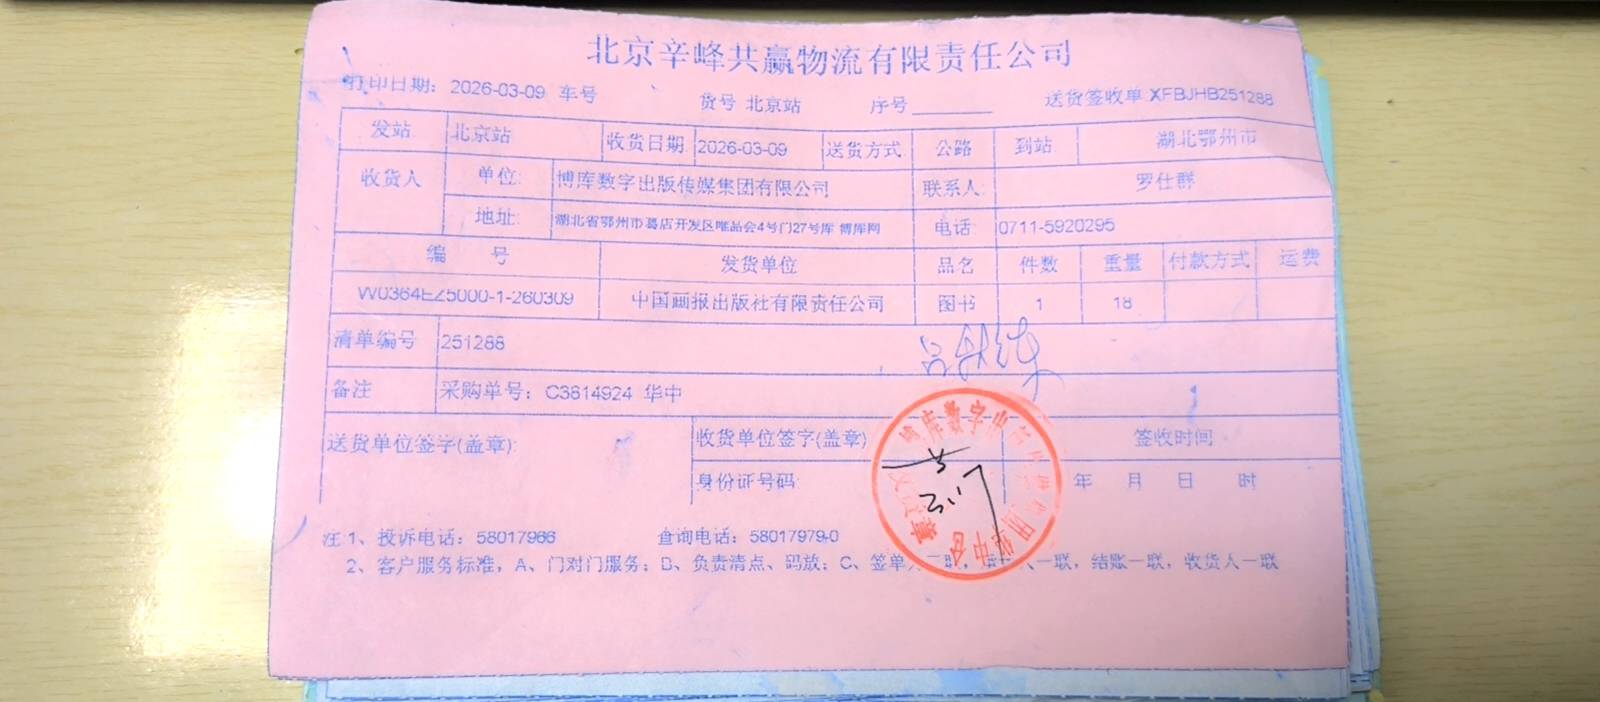 北京辛峰共赢物流有限责任公司
打印日期：2026-03-09 车号 货号 北京站 序号 送货签收单 XFBJHB251288
发站 北京站 收货日期 2026-03-09 送货方式 公路 到站 湖北鄂州市
收货人 单位: 博库数字出版传媒集团有限公司 联系人: 罗仕群
地址: 湖北省鄂州市葛店开发区唯品会4号门27号库 博库网 电话: 0711-5920295
编 号 发货单位 品名 件数 重量 付款方式 运费
W0364EZ5000-1-260309 中国画报出版社有限责任公司 图书 1 18
清单编号 251288
备注 采购单号：C3814924 华中
送货单位签字(盖章): 收货单位签字(盖章) 签收时间
身份证号码: 年 月 日 时
博库数字出
注 1、投诉电话：58017966 查询电话：58017979-0
2、客户服务标准，A、门对门服务；B、负责清点、码放；C、签单 联， 一联，结账一联，收货人一联